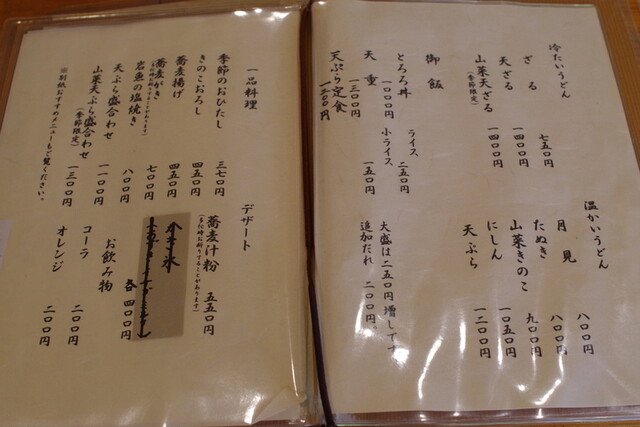 冷たいうどん
ざる　七五〇円
天ざる　一四〇〇円
山菜天ざる　一四〇〇円
(季節限定)
温かいうどん
八〇〇円
月見　八〇〇円
たぬき　九〇〇円
山菜きのこ　一〇五〇円
にしん　一二〇〇円
天ぷら
御飯
ライス　二五〇円
小ライス　一五〇円
とろろ丼　一〇〇〇円
天重　一三〇〇円
天ぷら定食　一二〇〇円
大盛は二五〇円増しです
追加だれ　二〇〇円。
一品料理
季節のおひたし　三七〇円
きのこおろし　四五〇円
蕎麦揚げ　四五〇円
蕎麦がき　七〇〇円
(多忙時お断りすることがあります)
岩魚の塩焼き　八〇〇円
天ぷら盛合わせ　一一〇〇円
山菜天ぷら盛合わせ　一三〇〇円
(季節限定)
※別紙おすすめメニューもご覧ください。
デザート
蕎麦汁粉　五五〇円
(多忙時お断りすることがあります)
かき氷
各四〇〇円
お飲み物
コーラ　二〇〇円
オレンジ　二〇〇円